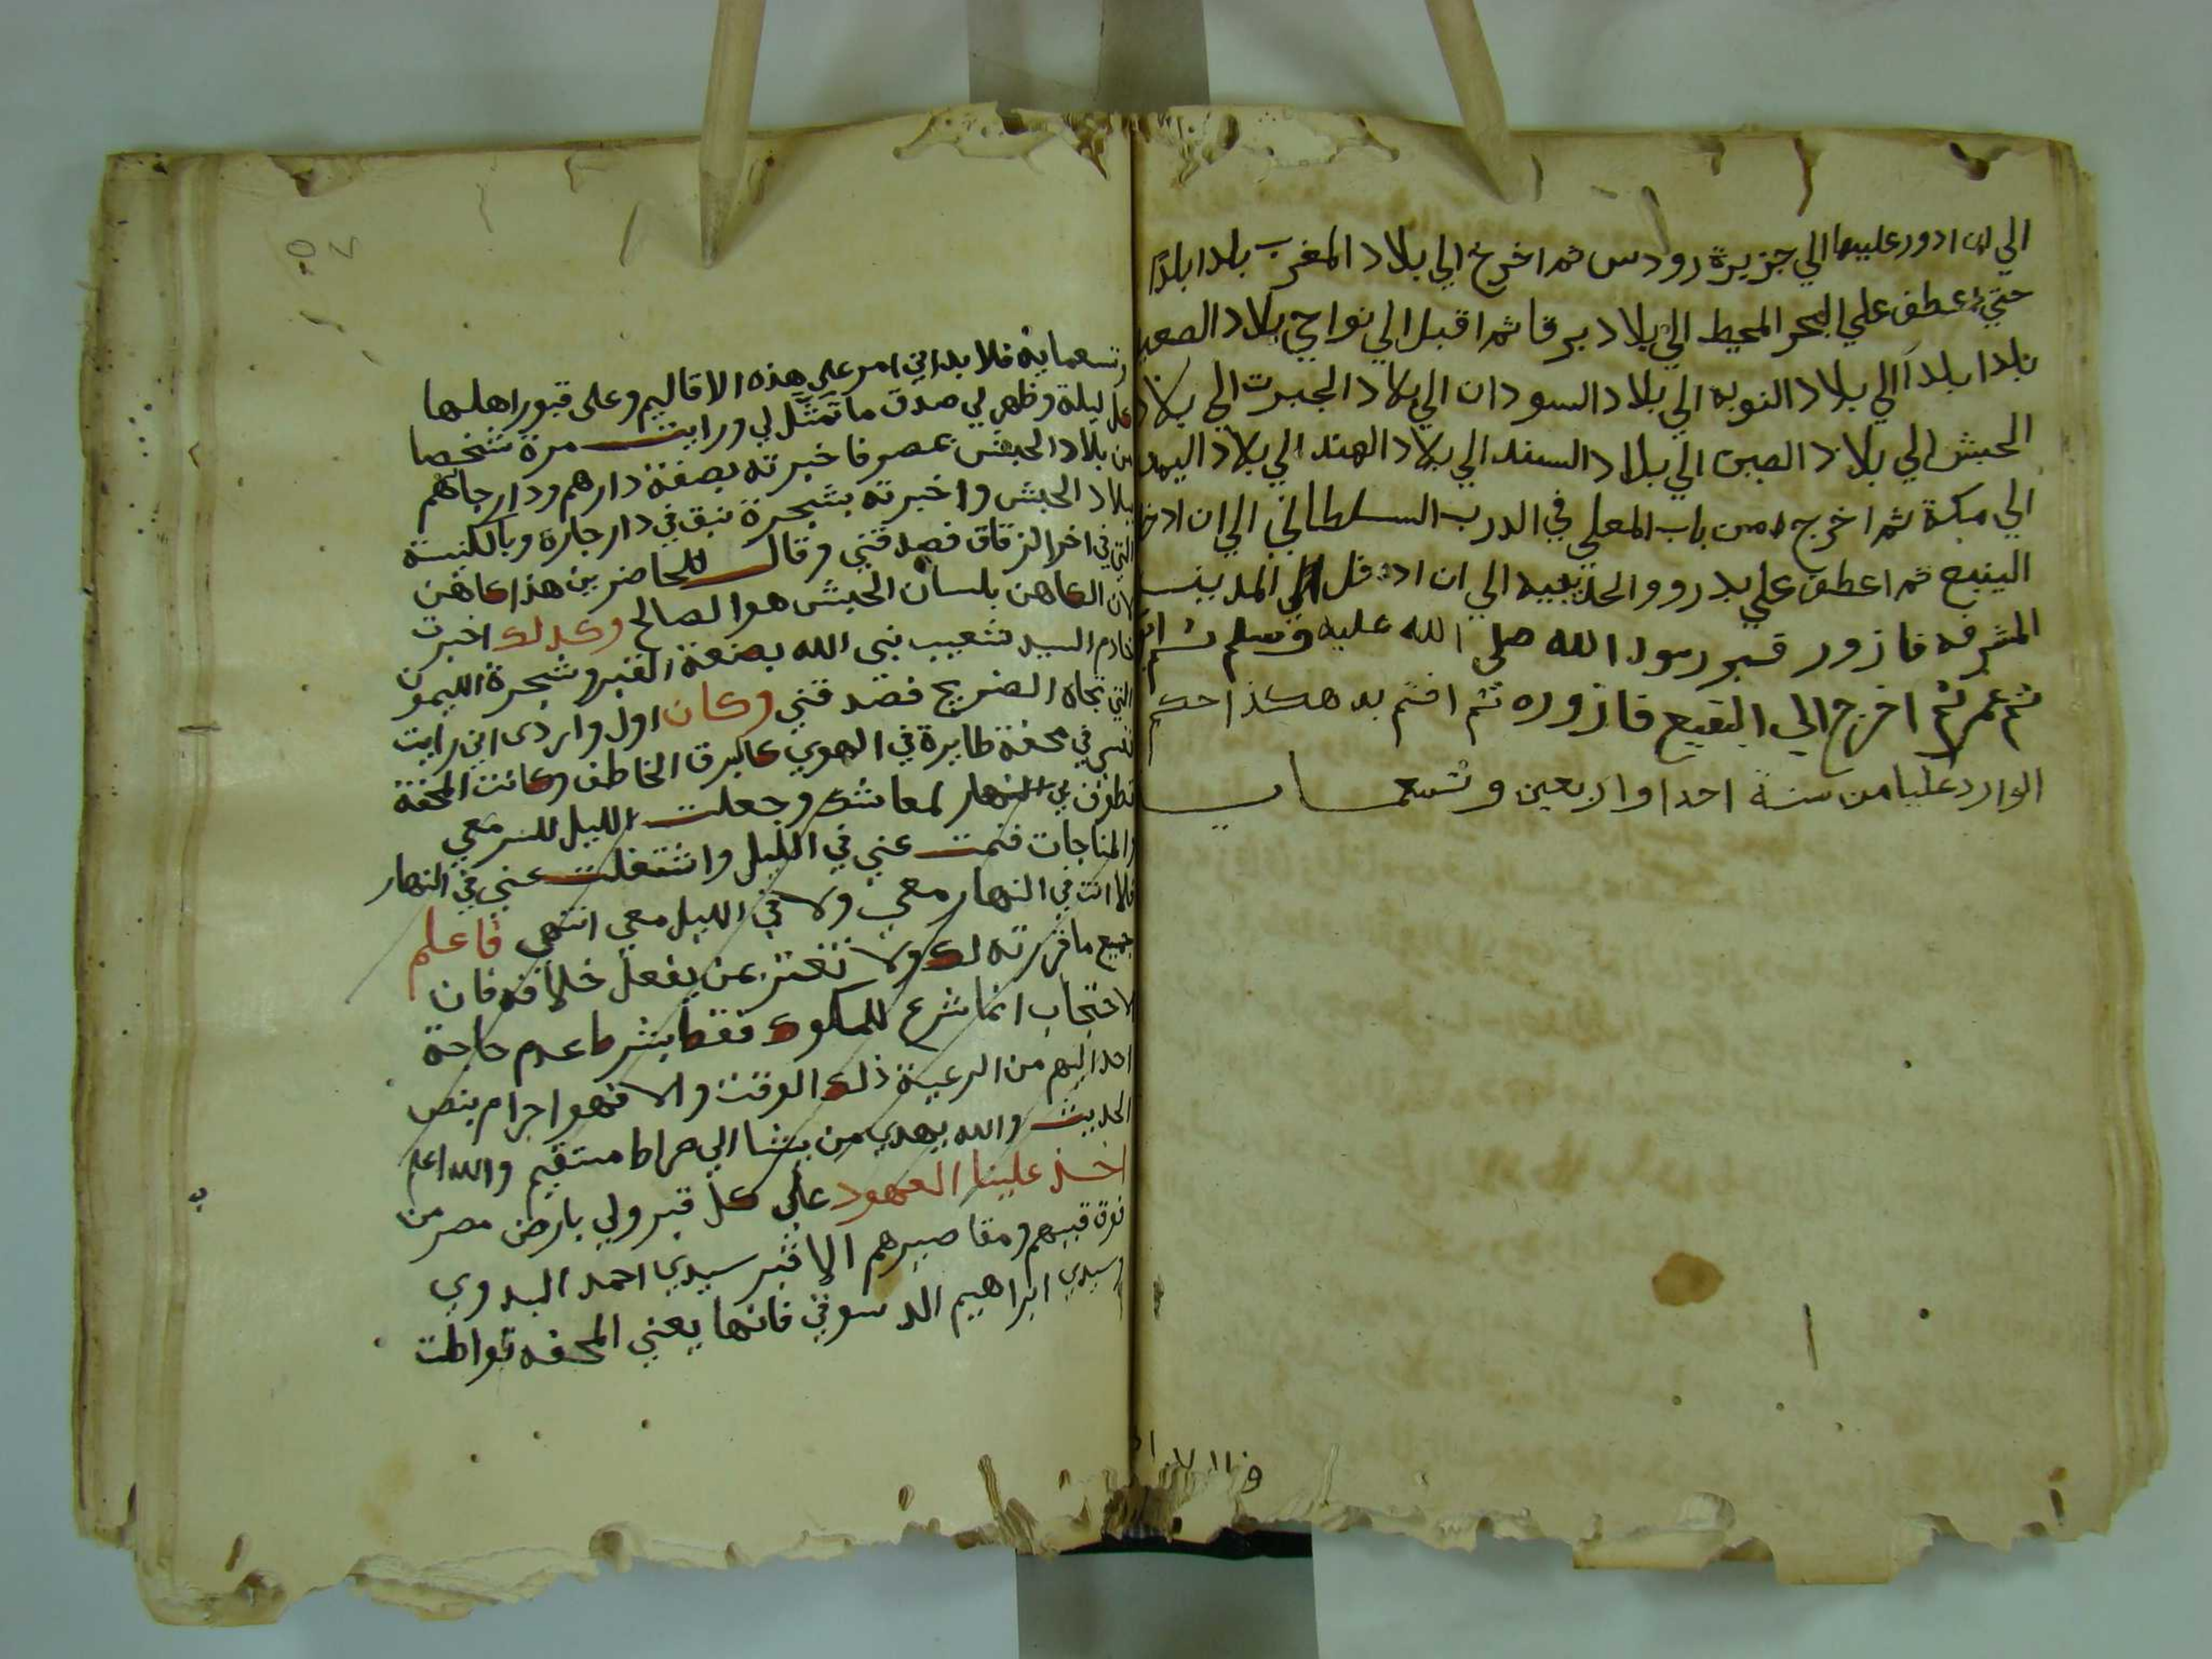 الي ان ادور عليها الي جزيرة رودس ثم اخرج الي بلاد المغرب بلدا بلدا
حتي اعطف علي البحر المحيط الي بلاد برقا ثم اقبل الي نواحي بلاد الصعيد
بلدا بلداً الي بلاد النوبه الي بلاد السودان الي بلاد الجبرت الي بلاد
الحبش الي بلاد الصين الي بلاد السند الي بلاد الهند الي بلاد اليمن
الي مكة ثم اخرج من باب المعلي في الدرب السلطاني الي ان ادخل
الينبع ثم اعطف علي بدر والحديبيه الي ان ادخل المدينـــــه
المشرفه فازور قبر رسول الله صلي الله عليه وسلم ثم
ثم عمر ثم اخرج الي البقيع فازوره ثم اختم به هكذا حكم
الوارد عليا من سنة احدا واربعين وتسعمايــــــه
٥٧
وتسعماية فلا بد اني امر علي هذه الاقاليم وعلى قبور اهلها
كل ليلة وظهر لي صدق ما تمثّل لي ورايت مرة شخصا
من بلاد الحبش بمصر فاخبرته بصفة دارهم ودار جارهم
ببلاد الحبش واخبرته بشجرة نبق في دار جاره وبالكنيسة
التي في اخر الزقاق فصدقني وقال للحاضرين هذا كاهن
لان الكاهن بلسان الحبش هو الصالح وكذلك اخبرت
خادم السيد شعيب نبى الله بصفة القبر وشجرة الليمون
التي تجاه الضريح فصدقني وكان اول واردى اني رايت
نفسي في محفة طايرة في الهوي كالبرق الخاطف وكانت المحفة
تطوف بي النهار لمعاشك وجعلت الليل للسر معي
والمناجات فنمت عني في الليل واشتغلت عني في النهار
فلا انت في النهار معي ولا في الليل معي انتهي فاعلم
جميع ما قررته لك ولا تغتر بمن يفعل خلافه فان
الاحتجاب انما شرع للملوك فقط بشرط عدم حاجة
احد اليهم من الرعية ذلك الوقت والا فهو احرام بنص
الحديث والله يهدي من يشا الي صراط مستقيم والله اعلم
اخذ علينا العهود على كل قبر ولي بارض مصر من
فوق قببهم ومقاصيرهم الا قبر سيدي احمد البدوي
وسيدي ابراهيم الدسوقي فانها يعني المحفه تواطت